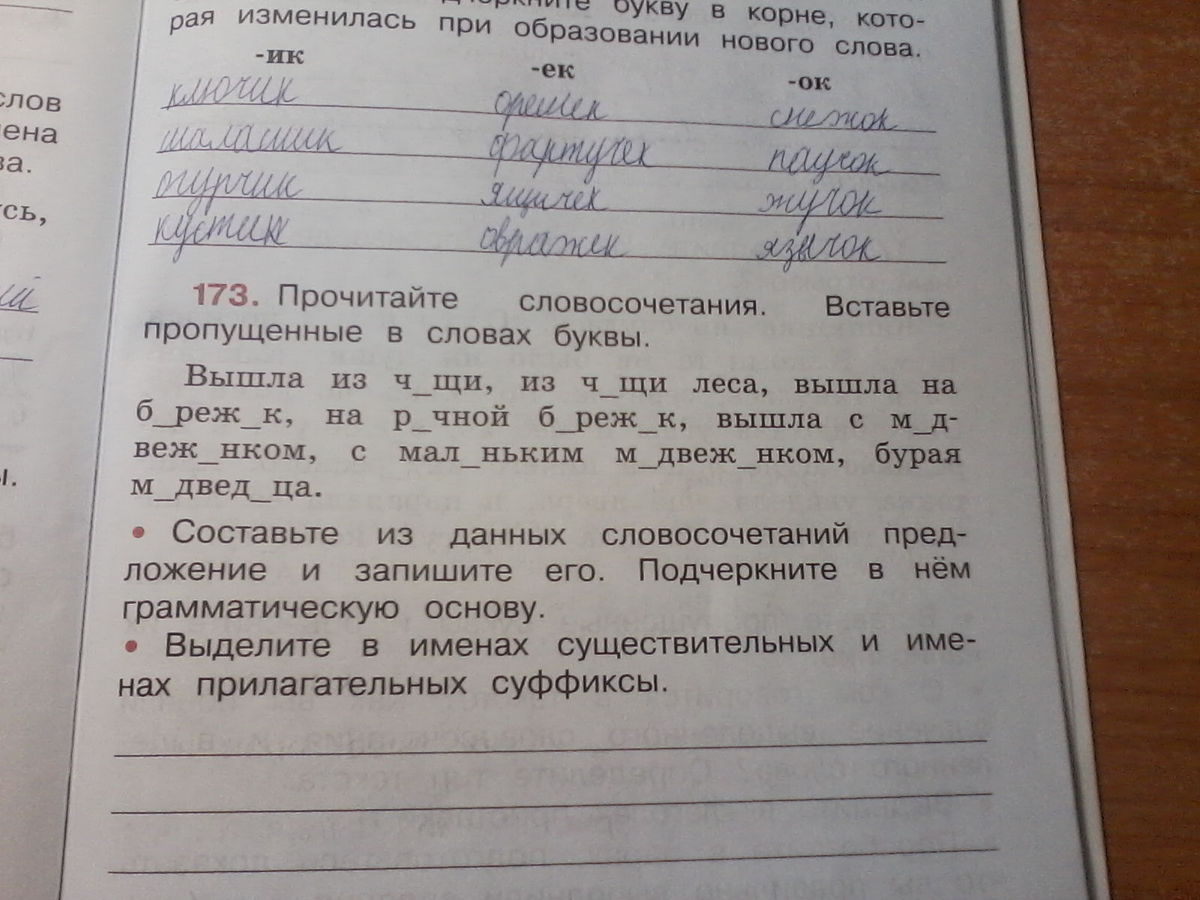 буквы в корне, кото-
рая изменилась при образовании нового слова.
-ик -ек -ок
ключик орешек снежок
шалашик фартучек паучок
огурчик ящичек жучок
кустик овражек язычок
слов
ена
ва.
усь,
ый
ы.
173. Прочитайте словосочетания. Вставьте
пропущенные в словах буквы.
Вышла из ч_щи, из ч_щи леса, вышла на
б_реж_к, на р_чной б_реж_к, вышла с м_д-
веж_нком, с мал_ньким м_двеж_нком, бурая
м_двед_ца.
• Составьте из данных словосочетаний пред-
ложение и запишите его. Подчеркните в нём
грамматическую основу.
• Выделите в именах существительных и име-
нах прилагательных суффиксы.